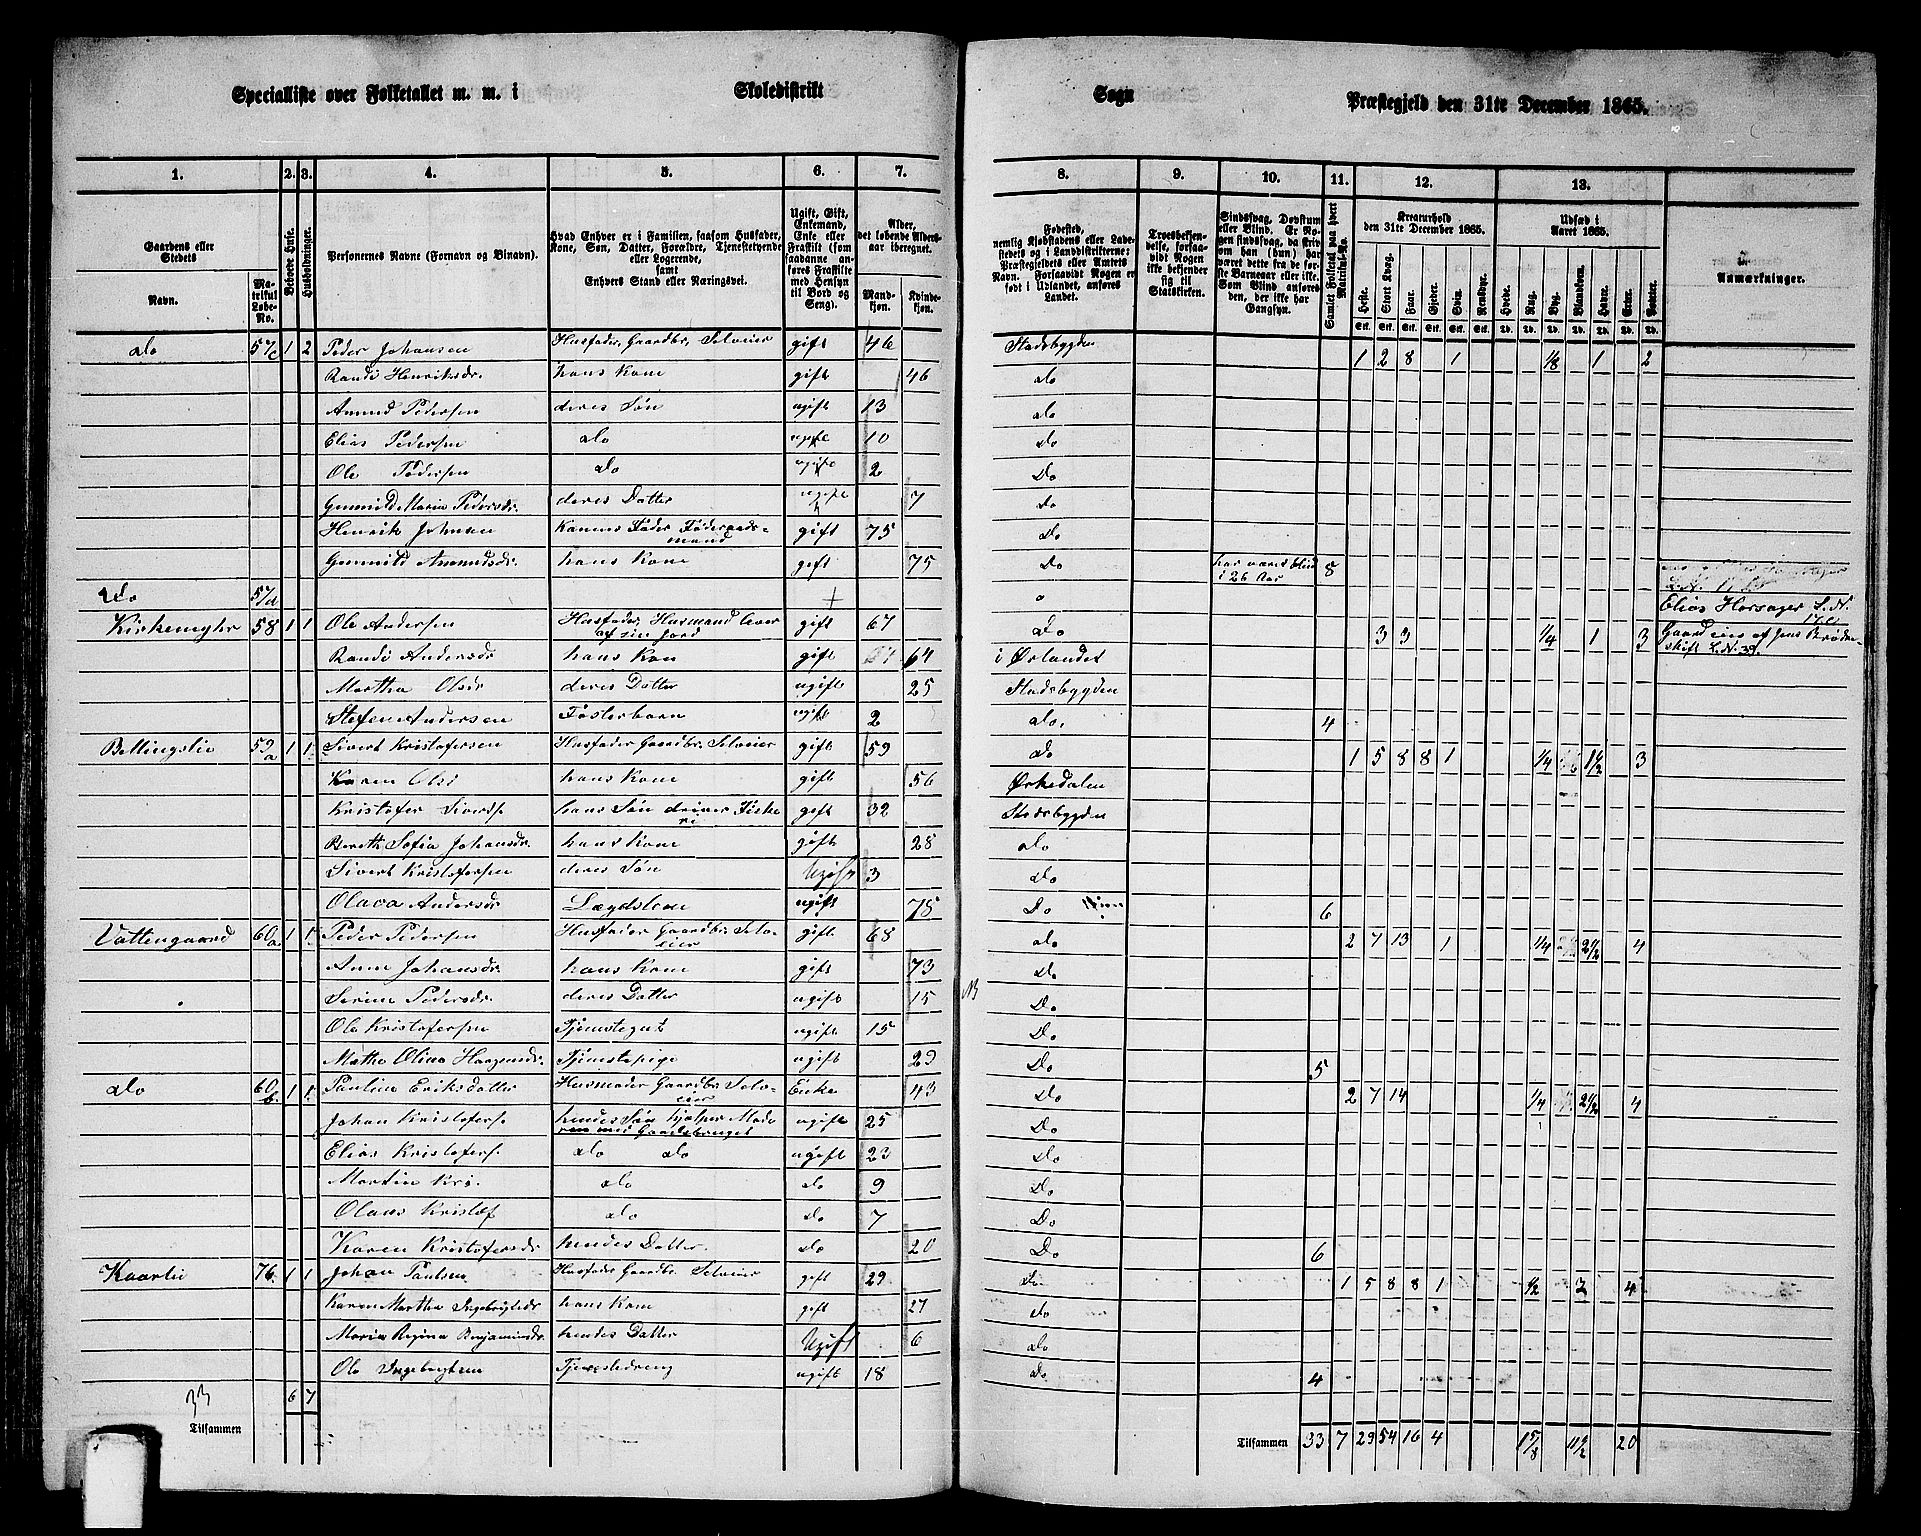 Specialliste over Folketallet m. m. i Skoledistrikt Sogn Præstegjeld den 31te December 1865.
1. 2. 3. 4. 5. 6. 7. 8. 9. 10. 11. 12. 13.
Gaardens eller Stedets
Navn.
Matrikul Løbe-No.
Beboede Huse.
Husholdninger.
Personernes Navne (Fornavn og Binavn).
Hvad Enhver er i Familien, saasom Husfader, Kone, Søn, Datter, Forældre, Tjenestetyende eller Logerende,
samt
Enhvers Stand eller Næringsvei.
Ugift, Gift, Enkemand, Enke eller Fraskilt (som saadanne anføres Fraskilte med Hensyn til Bord og Seng).
Alder, det løbende Aldersaar iberegnet.
Mandkjøn. Kvindekjøn.
Fødested,
nemlig Kjøbstadens eller Ladestedets og i Landdistrikterne: Præstegjeldets eller Amtets Navn. Forsaavidt Nogen er født i Udlandet, anføres Landet.
Troesbekjendelse, forsaavidt Nogen ikke bekjender sig til Statskirken.
Sindssvag, Døvstum eller Blind. Er Nogen sindssvag, da skrives om han (hun) har været dette fra de første Barneaar eller ikke. Som Blind anføres den, der ikke har Gangsyn.
Samlet Folketal paa hvert Matrikul-No.
Kreaturhold den 31te December 1865.
Heste. Stort Kvæg. Faar. Gjeder. Svin. Rensdyr.
Udsæd i Aaret 1865.
Hvede. Rug. Byg. Blandkorn. Havre. Erter. Poteter.
Anmærkninger.
Do 57c 1 2 Peder Johansen Husfader, Gaardbr. Selveier gift 46 Stadsbygden 1 2 8 1 1/8 1 2
Randi Henriksdr. hans Kone gift 46 do
Amund Pedersen deres Søn ugift 13 do
Elias Pedersen do ugift 10 Do
Ole Pedersen do ugift 2 Do
Gunnild Maria Pedersdr. deres Datter ugift 7 do
Henrik Johnsen Konens Fader Føderaadsmand gift 75 do
Gunnild Amundsdr. hans Kone gift 75 Do har været blind i 26 Aar 8
Do 57d
Elias Horsager L.N.
Kirkemyhr 58 1 1 Ole Andersen Husfader, Husmand lever af sin Jord gift 67 Do 3 3 1/4 1 3
Randi Andersdr hans Kone gift 64 i Ørlandet
Martha Olsdr deres Datter ugift 25 Stadsbygden
Stefen Andersen Fosterbarn ugift 2 do. 4
Bellingslie 59a 1 1 Sivert Kristofersen Husfader Gaardbr. Selveier gift 59 do 1 5 8 8 1 1/4 1 1/2 3
Karen Olsd hans Kone gift 56 Ørkedalen
Kristofer Siverts. hans Søn driver Fiskeri gift 32 Stadsbygden
Bereth Sofia Johansdr. hans Kone gift 28 do
Sivert Kristofersen deres Søn Ugift 3 do
Olava Andersdr Lægdslem ugift 75 Do 6
Vattengaard 60a 1 1 Peder Pedersen Husfader Gaardbr. Selveier gift 68 do 2 7 13 1 1/4 2 1/2 4
Anne Johansdr. hans Kone gift 73 Do
Serine Pedersdr. deres Datter ugift 15 NB Do
Ole Kristofersen Tjenstegut ugift 15 Do
Mathe Olina Haagensdr. Tjenstepige ugift 29 Do 5
Do 60b 1 1 Pauline Eriksdatter Husmoder Gaardbr. Selveier Enke 43 Do 2 7 14 1/4 2 1/2 4
Johan Kristofers. hendes Søn hjælper Moderen med Gaardsbruget ugift 25 Do
Elias Kristofers. do do ugift 23 Do
Martin Kri. do do 9 Do
Olaus Kristof do do 7 Do
Karen Kristofersdr hendes Datter. do 20 Do 6
Kaarlie 76. 1 1 Johan Paulsen Husfader Gaardbr. Selveier gift 29 Do 1 5 8 8 1 1/2 3 4
Karen Martha Ingebrigtsdr hans Kone gift 27 do
Maria Regina Benjaminsdr. hendes Datter Ugift 6 do
Ole Ingebrigtsen Tjenestedreng ugift 18 Do 4
33 6 7
Tilsammen Tilsammen 33 7 29 54 16 4 1 5/8 11 1/2 20